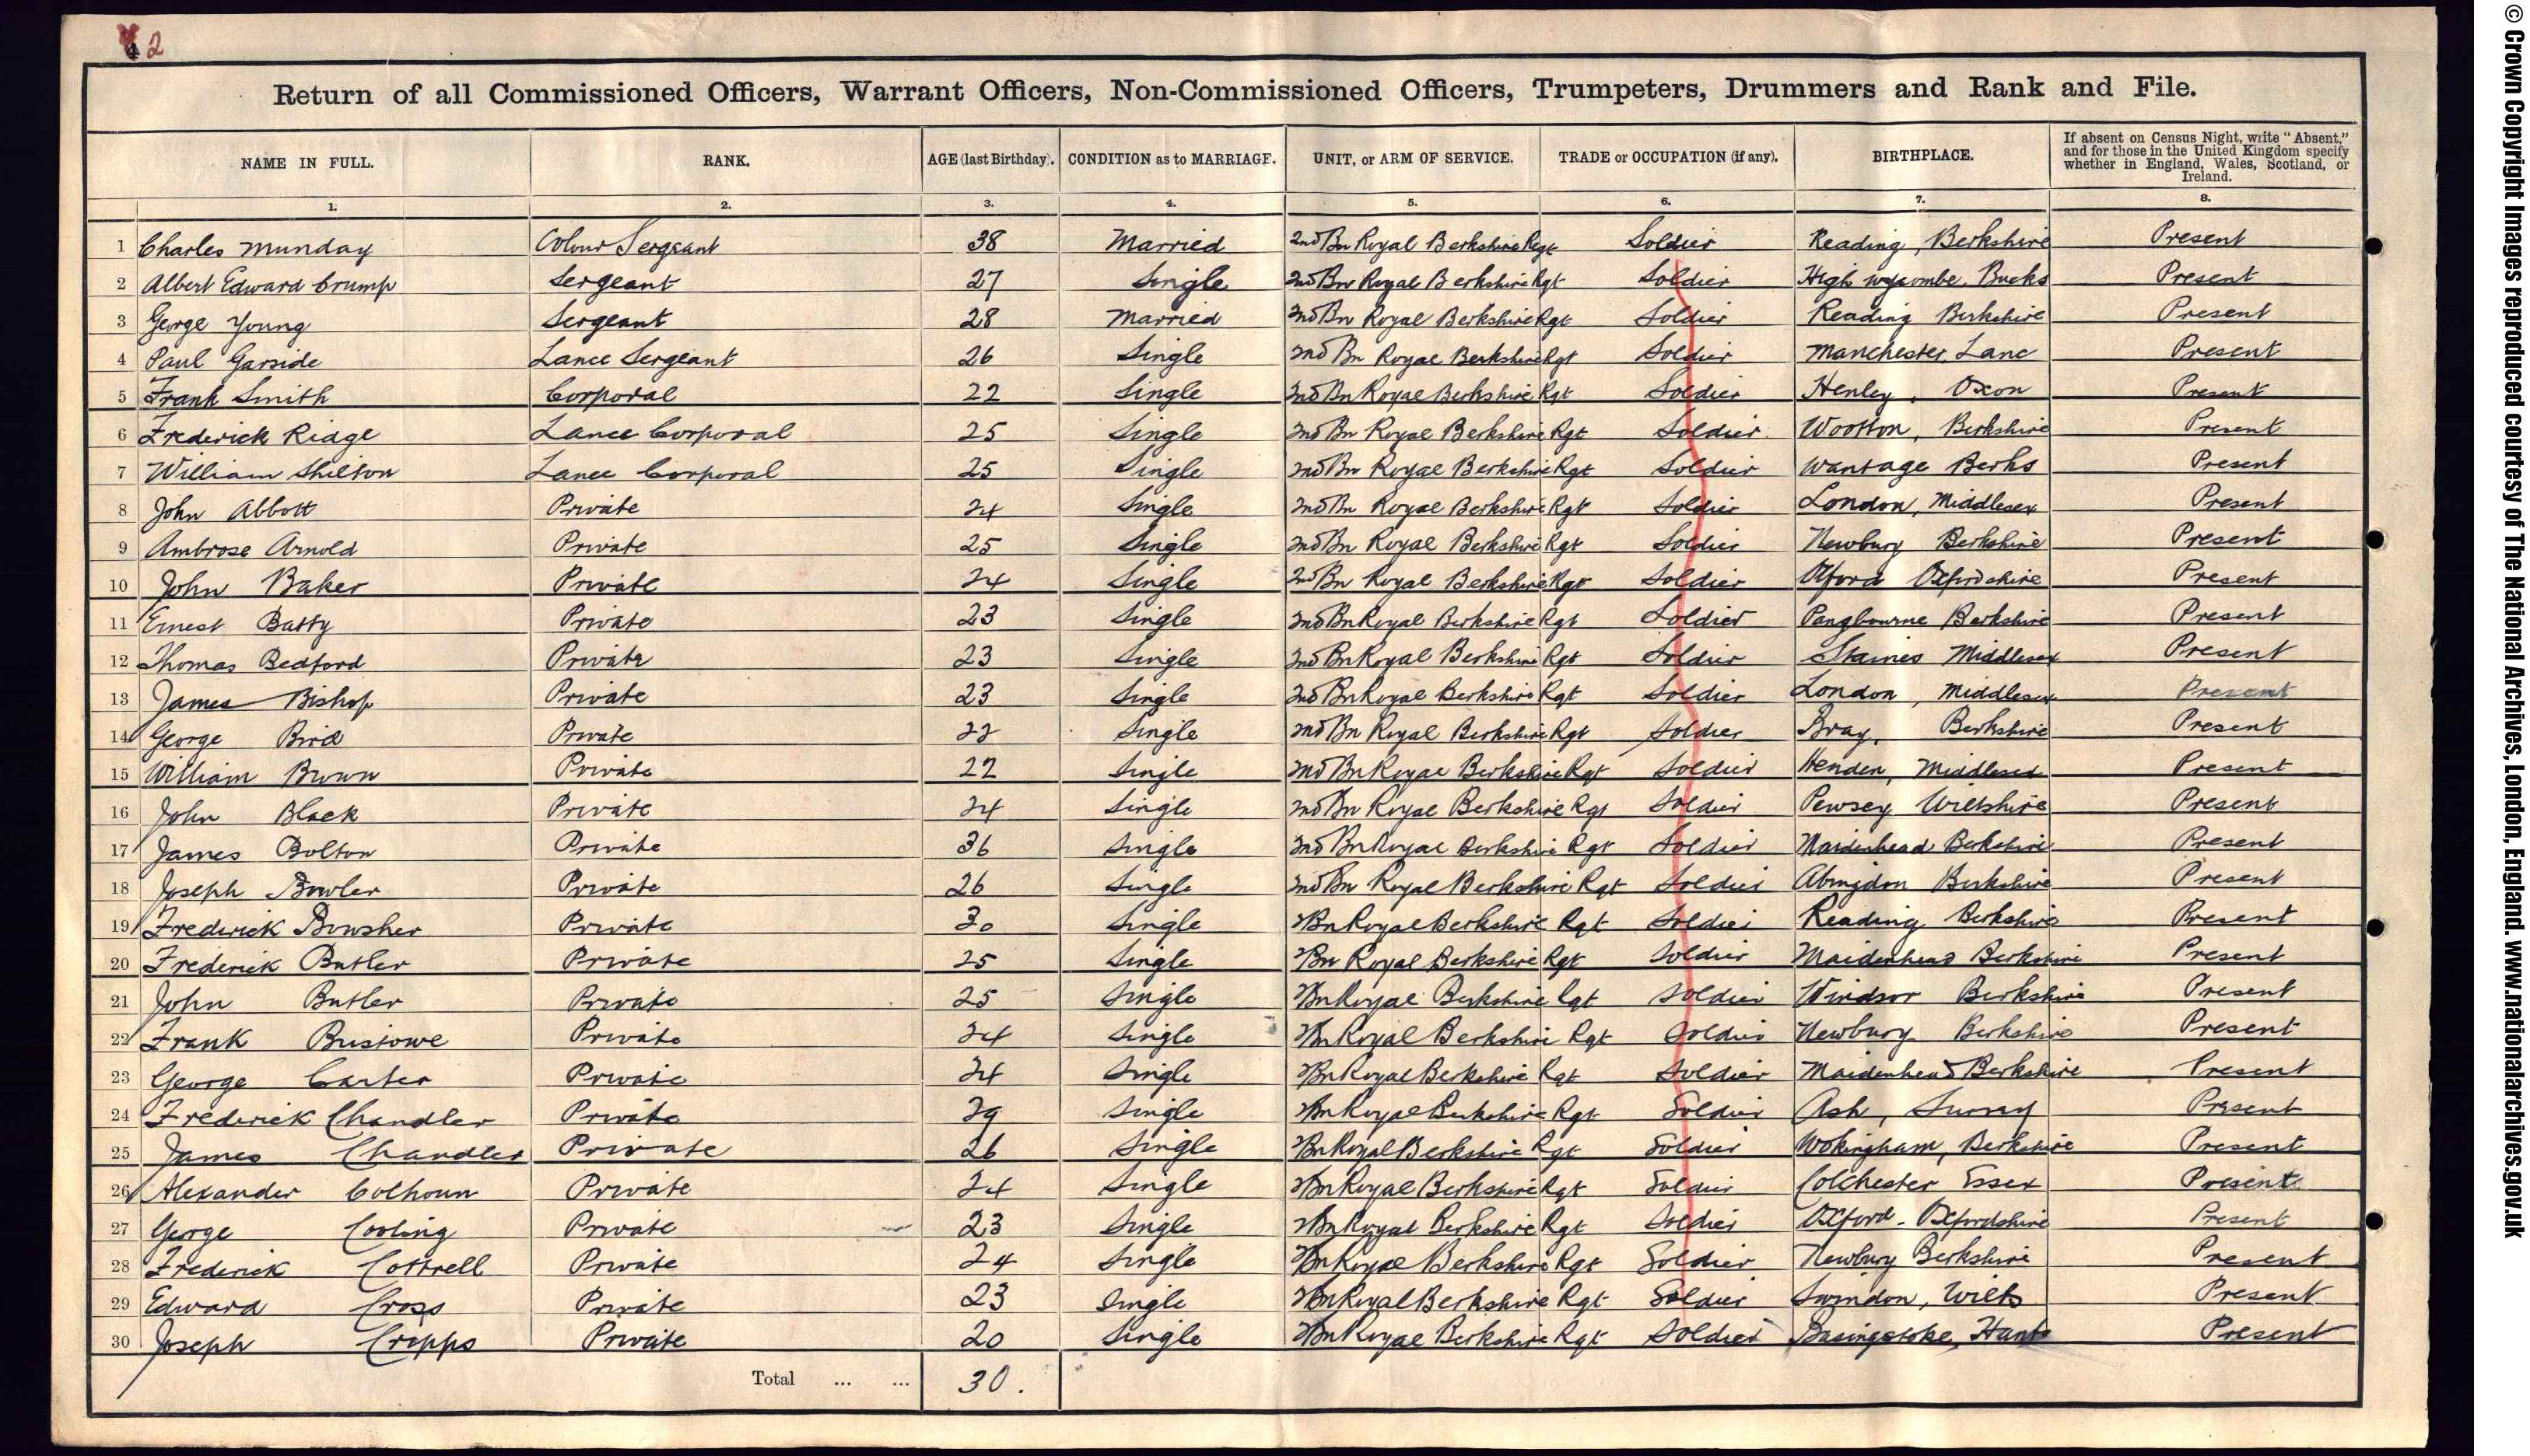 2
Return of all Commissioned Officers, Warrant Officers, Non-Commissioned Officers, Trumpeters, Drummers and Rank and File.
NAME IN FULL. RANK. AGE (last Birthday). CONDITION as to MARRIAGE. UNIT, or ARM OF SERVICE. TRADE or OCCUPATION (if any). BIRTHPLACE. If absent on Census Night, write "Absent," and for those in the United Kingdom specify whether in England, Wales, Scotland, or Ireland.
1. 2. 3. 4. 5. 6. 7. 8.
1 Charles Munday Colour Sergeant 38 Married 2nd Bn Royal Berkshire Regt Soldier Reading, Berkshire Present
2 Albert Edward Crump Sergeant 27 Single 2nd Bn Royal Berkshire Rgt Soldier High Wycombe, Bucks Present
3 George Young Sergeant 28 Married 2nd Bn Royal Berkshire Rgt Soldier Reading Berkshire Present
4 Paul Garside Lance Sergeant 26 Single 2nd Bn Royal Berkshire Rgt Soldier Manchester, Lanc Present
5 Frank Smith Corporal 22 Single 2nd Bn Royal Berkshire Rgt Soldier Henley, Oxon Present
6 Frederick Ridge Lance Corporal 25 Single 2nd Bn Royal Berkshire Rgt Soldier Wootton, Berkshire Present
7 William Shilton Lance Corporal 25 Single 2nd Bn Royal Berkshire Rgt Soldier Wantage Berks Present
8 John Abbott Private 24 Single 2nd Bn Royal Berkshire Rgt Soldier London, Middlesex Present
9 Ambrose Arnold Private 25 Single 2nd Bn Royal Berkshire Rgt Soldier Newbury Berkshire Present
10 John Baker Private 24 Single 2nd Bn Royal Berkshire Rgt Soldier Oford Oxfordshire Present
11 Ernest Batty Private 23 Single 2nd Bn Royal Berkshire Rgt Soldier Pangbourne Berkshire Present
12 Thomas Bedford Private 23 Single 2nd Bn Royal Berkshire Rgt Soldier Staines Middlesex Present
13 James Bishop Private 23 Single 2nd Bn Royal Berkshire Rgt Soldier London, Middlesex Present
14 George Bird Private 22 Single 2nd Bn Royal Berkshire Rgt Soldier Bray, Berkshire Present
15 William Brown Private 22 Single 2nd Bn Royal Berkshire Rgt Soldier Hendon, Middlesex Present
16 John Black Private 24 Single 2nd Bn Royal Berkshire Rgt Soldier Pewsey Wiltshire Present
17 James Bolton Private 36 Single 2nd Bn Royal Berkshire Rgt Soldier Maidenhead Berkshire Present
18 Joseph Bowler Private 26 Single 2nd Bn Royal Berkshire Rgt Soldier Abingdon Berkshire Present
19 Frederick Bowsher Private 30 Single 2 Bn Royal Berkshire Rgt Soldier Reading Berkshire Present
20 Frederick Butler Private 25 Single 2 Bn Royal Berkshire Rgt Soldier Maidenhead Berkshire Present
21 John Butler Private 25 Single 2 Bn Royal Berkshire Rgt Soldier Windsor Berkshire Present
22 Frank Bristowe Private 24 Single 2 Bn Royal Berkshire Rgt Soldier Newbury Berkshire Present
23 George Carter Private 24 Single 2 Bn Royal Berkshire Rgt Soldier Maidenhead Berkshire Present
24 Frederick Chandler Private 29 Single 2 Bn Royal Berkshire Rgt Soldier Ash, Surrey Present
25 James Chandler Private 26 Single 2 Bn Royal Berkshire Rgt Soldier Wokingham, Berkshire Present
26 Alexander Colhoun Private 24 Single 2 Bn Royal Berkshire Rgt Soldier Colchester Essex Present
27 George Cooling Private 23 Single 2 Bn Royal Berkshire Rgt Soldier Oxford - Oxfordshire Present
28 Frederick Cottrell Private 24 Single 2 Bn Royal Berkshire Rgt Soldier Newbury Berkshire Present
29 Edward Cross Private 23 Single 2 Bn Royal Berkshire Rgt Soldier Swindon, Wilts Present
30 Joseph Cripps Private 20 Single 2 Bn Royal Berkshire Rgt Soldier Basingstoke, Hants Present
Total ... ... 30.
© Crown Copyright Images reproduced courtesy of The National Archives, London, England. www.nationalarchives.gov.uk